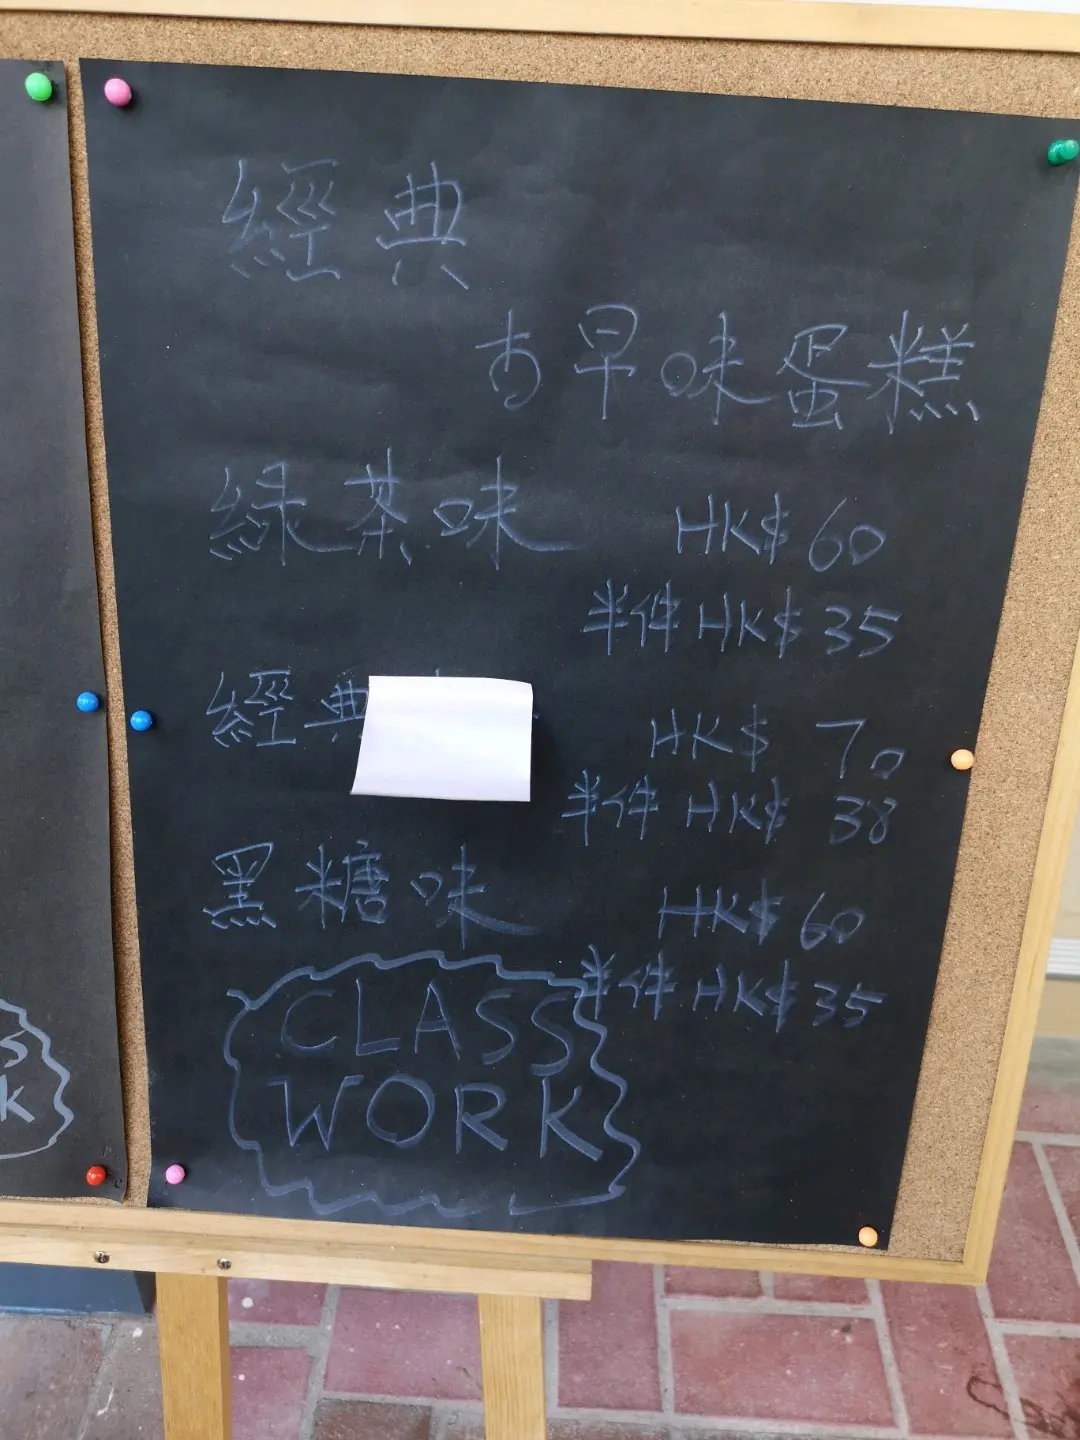 經典
古早味蛋糕
綠茶味 HK$ 60
半件 HK$ 35
經典 HK$ 70
半件 HK$ 38
黑糖味 HK$ 60
半件 HK$ 35
CLASS
WORK
S
K